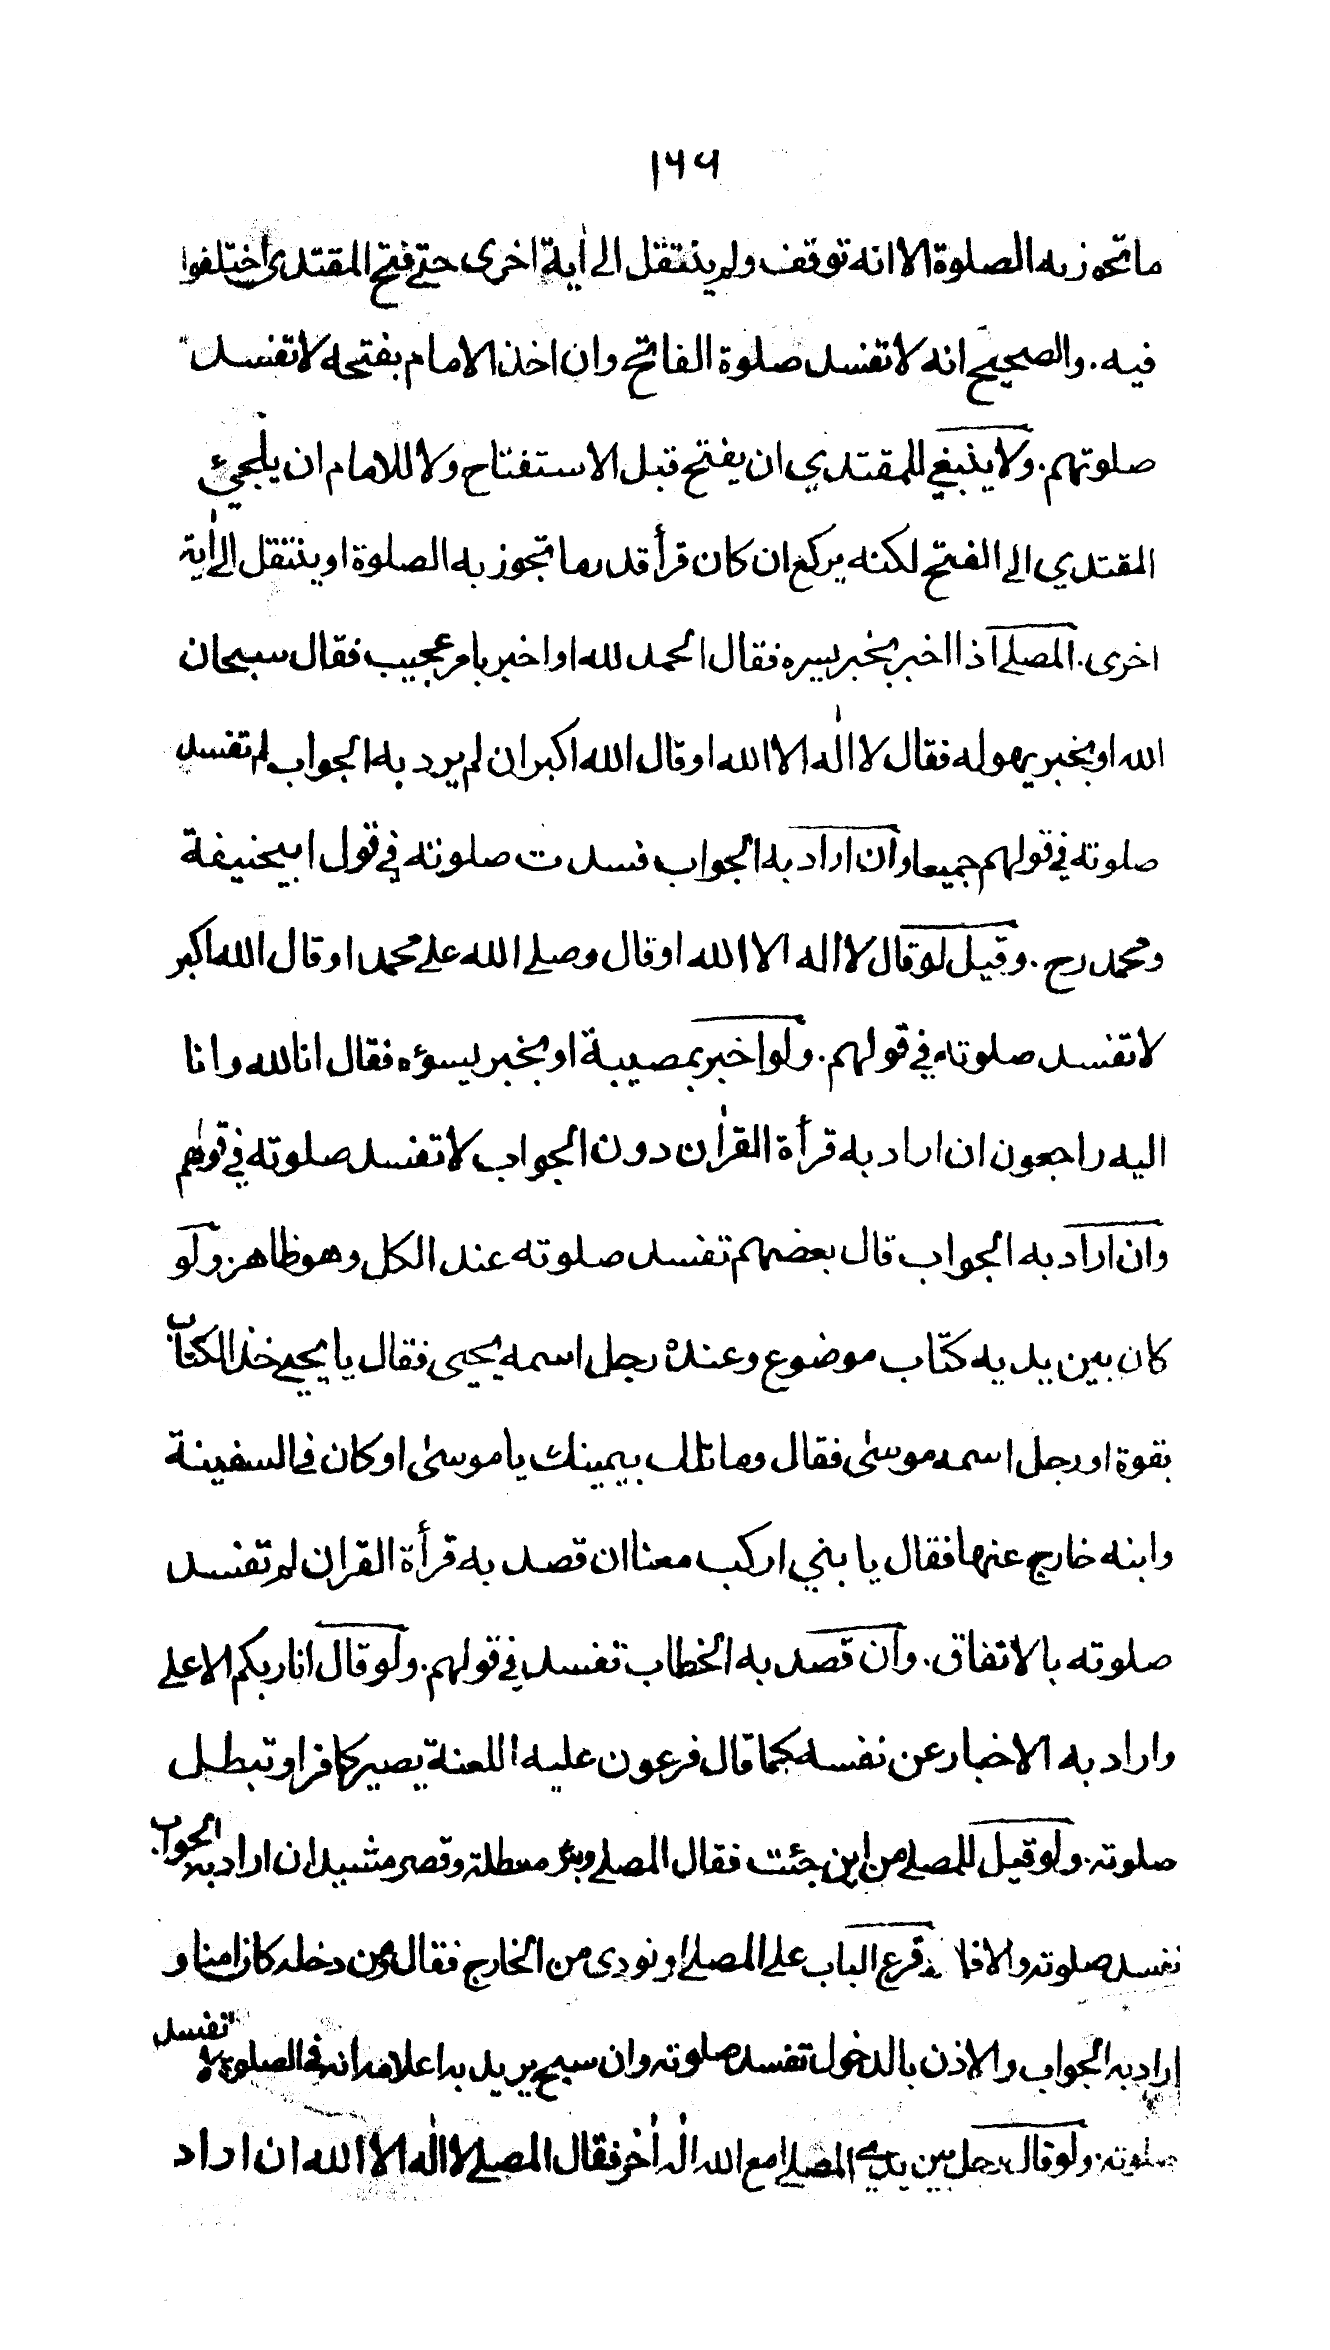 ١٦٦
ما تجوز به الصلوة الا انه توقف ولم ينتقل الى اٰية اخرى حتى فتح المقتدى اختلفوا
فيه. والصحيح انه لا تفسد صلوة الفاتح وان اخذ الامام بفتحه لا تفسد
صلوتهم. ولا ينبغي للمقتدي ان يفتح قبل الاستفتاح ولا للامام ان يلجئ
المقتدي الى الفتح لكنه يركع ان كان قرأ قدر ما تجوز به الصلوة او ينتقل الى اٰية
اخرى. المصلے اذا اخبر بخبر يسره فقال الحمد لله او اخبر بامر عجيب فقال سبحان
الله او بخبر يهوله فقال لا الٰه الا الله او قال الله اكبر ان لم يرد به الجواب لم تفسد
صلوته في قولهم جميعا وان اراد به الجواب فسدت صلوته في قول ابيحنيفة
ومحمد رح. وقيل لو قال لا اله الا الله او قال وصلے الله علے محمد او قال الله اكبر
لا تفسد صلوته في قولهم. ولو اخبر بمصيبة او بخبر يسؤه فقال انا لله وانا
اليه راجعون ان اراد به قرأة القراٰن دون الجواب لا تفسد صلوته في قولهم
وان اراد به الجواب قال بعضهم تفسد صلوته عند الكل وهو ظاهر. ولو
كان بين يديه كتاب موضوع وعنده رجل اسمه يحيى فقال يا يحيے خذ الكتاب
بقوة او رجل اسمه موسىٰ فقال وما تلك بيمينك يا موسىٰ او كان في السفينة
وابنه خارج عنها فقال يا بني اركب معنا ان قصد به قرأة القران لم تفسد
صلوته بالاتفاق. وان قصد به الخطاب تفسد في قولهم. ولو قال انا ربكم الاعلے
واراد به الاخبار عن نفسه كما قال فرعون عليه اللعنة يصير كافرا وتبطل
صلوته. ولو قيل للمصلے من اين جئت فقال المصلے وبئر معطلة وقصر مشيد ان اراد به الجواب
تفسد صلوته والا فلا قرع الباب علے المصلے او نودى من الخارج فقال ومن دخله كان امنا و
اراد به الجواب والاذن بالدخول تفسد صلوته وان سبح يريد به اعلامه انه في الصلوة لا تفسد
صلوته. ولو قال رجل بين يدي المصلے امع الله الٰه اٰخر فقال المصلے لا الٰه الا الله ان اراد